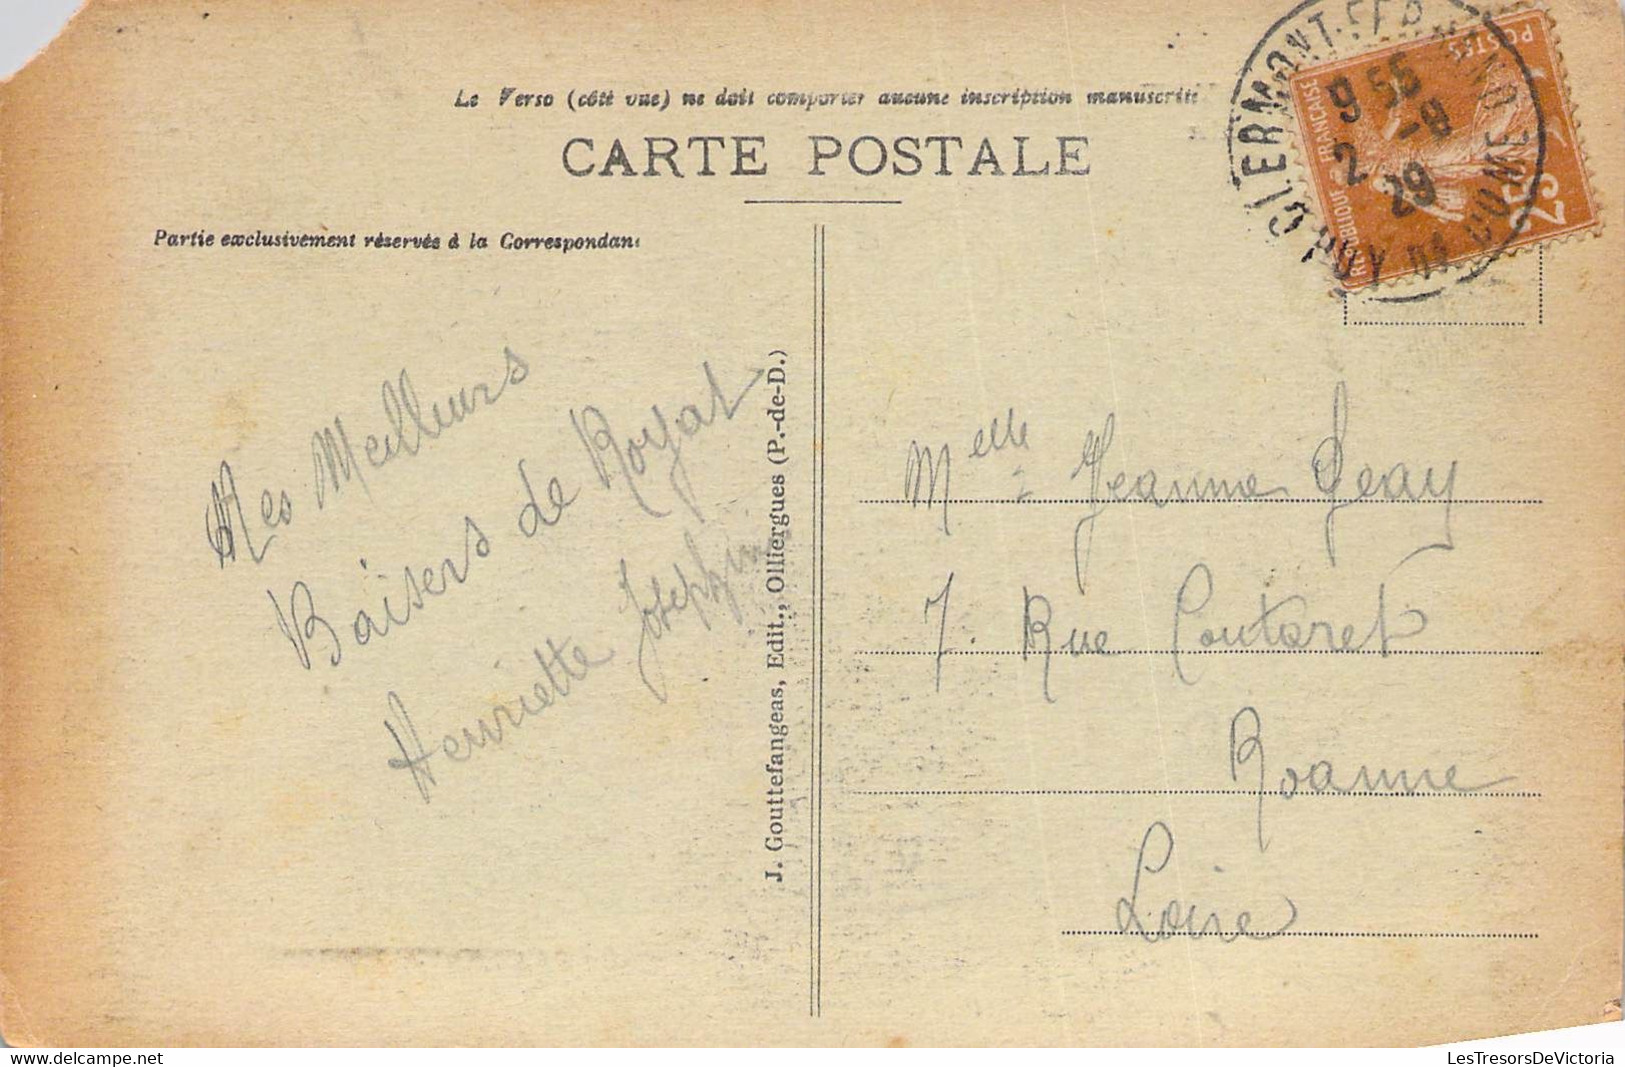 Le Verso (côté vue) ne doit comporter aucune inscription manuscrite
CARTE POSTALE
Partie exclusivement réservée à la Correspondan
CLERMONT-FERRAND
PUY DE DOME
9 55
2 -8
29
POSTES
REPUBLIQUE FRANÇAISE
25
Mes Meilleurs
Baisers de Royat
Henriette Josephine
J. Gouttefangeas, Edit., Olliergues (P.-de-D.)
Melle Jeanne Geay
7. Rue Coutaret
Roanne
Loire
LesTresorsDeVictoria